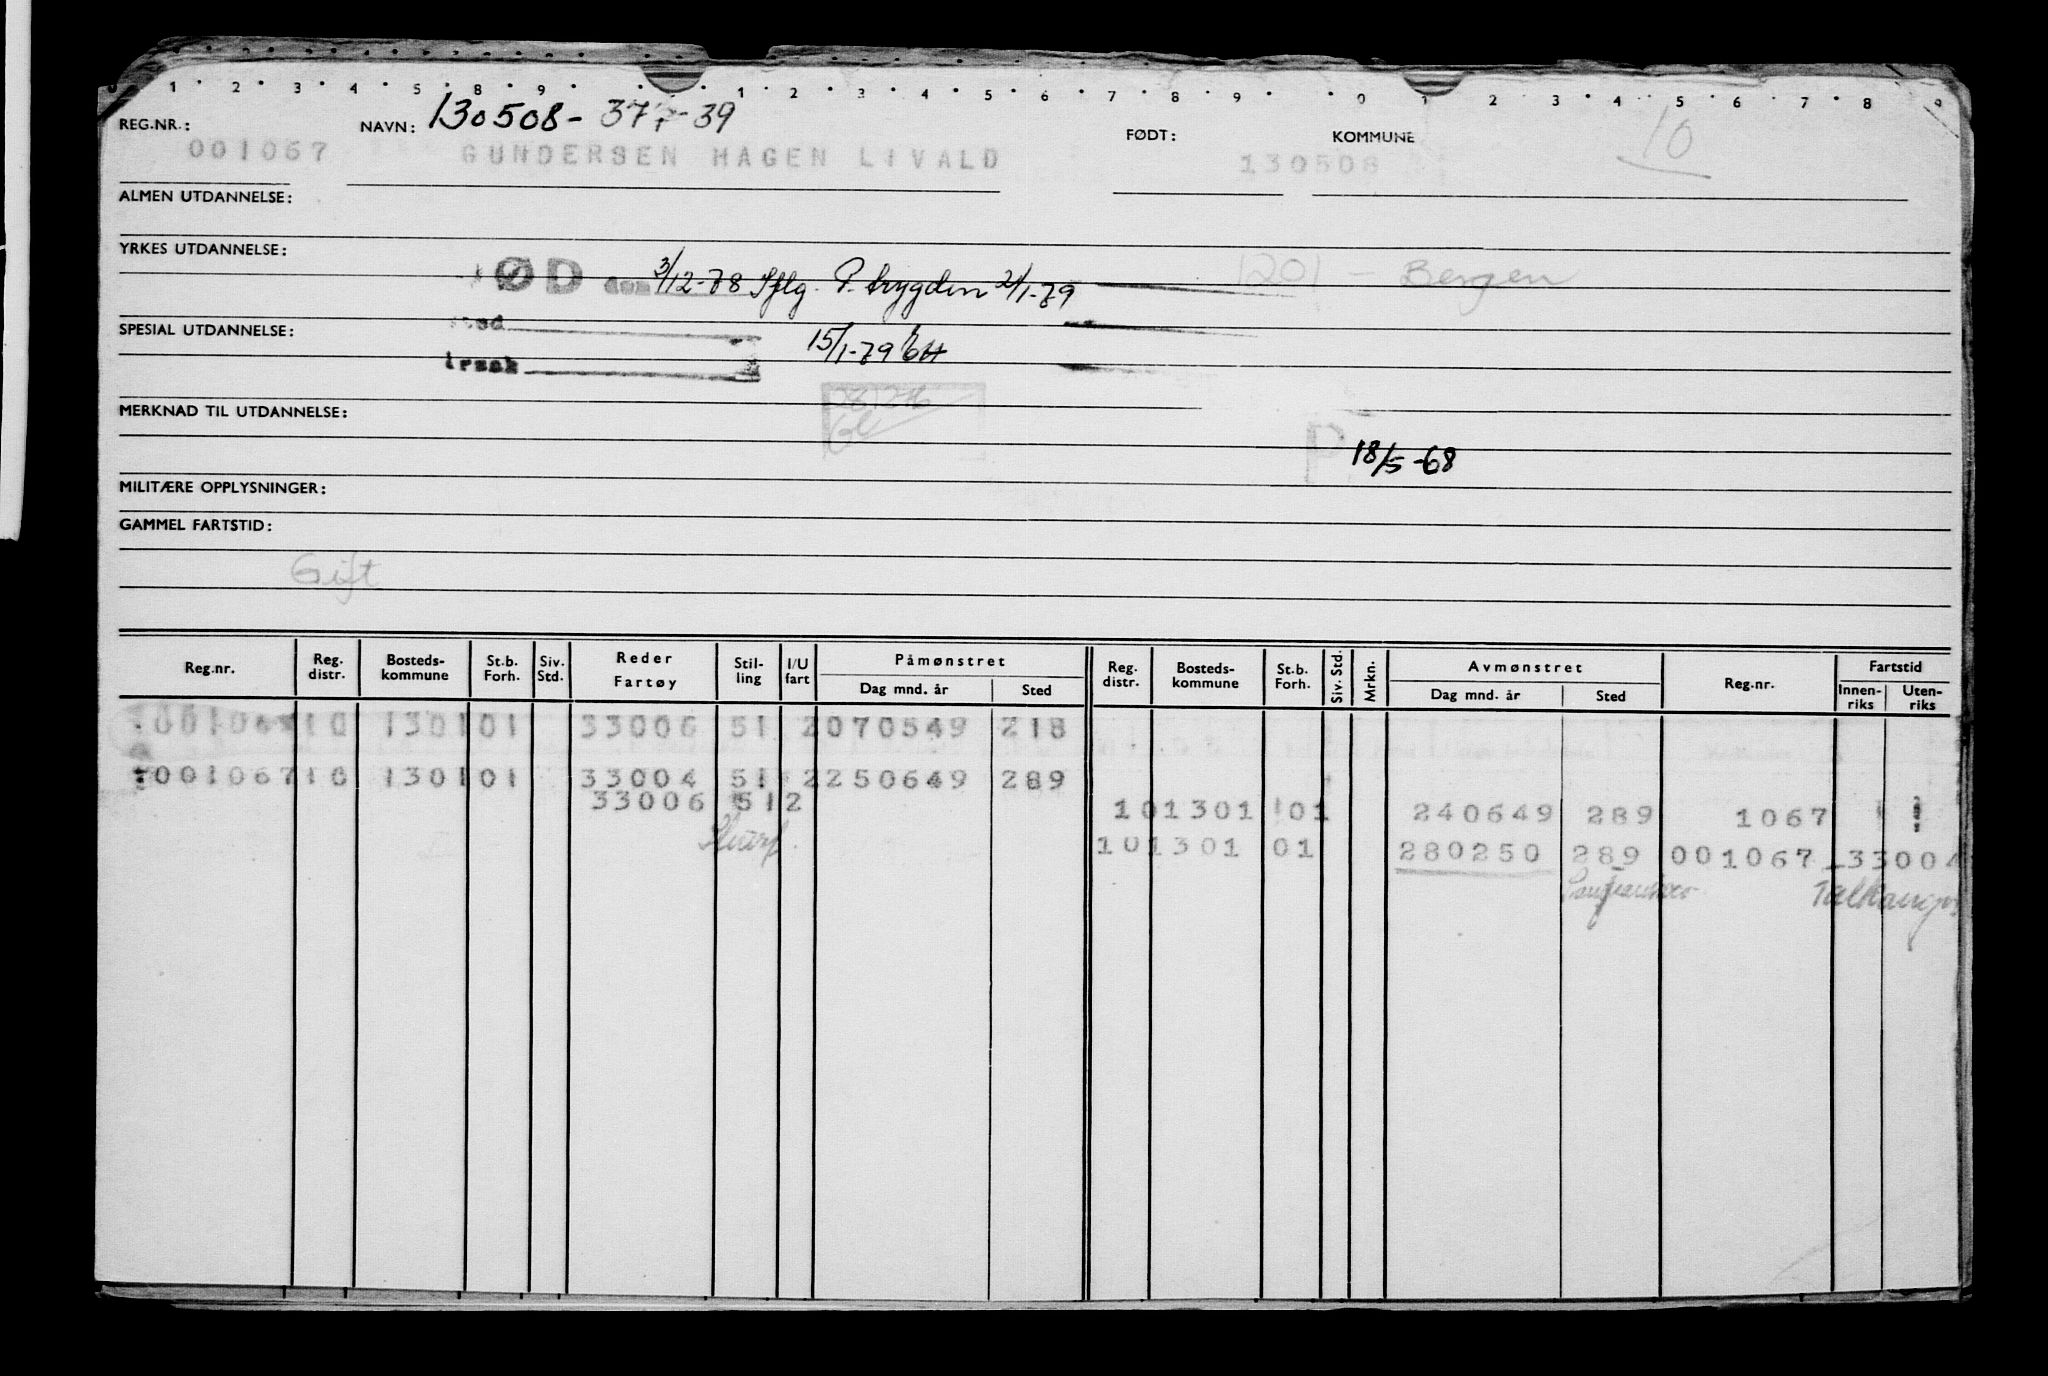 1 2 3 4 5 8 9 1 2 3 4 5 6 7 8 9 0 1 2 3 4 5 6 7 8 9
REG.NR.: NAVN: 130508- 39 FØDT: KOMMUNE 10
001067 GUNDERSEN HAGEN LIVALD 130508
ALMEN UTDANNELSE:
YRKES UTDANNELSE:
ØD den 3/12-78 Iflg. P. trygden 2/1-79 1201 - Bergen
sted
SPESIAL UTDANNELSE: 15/1-79
årsak
MERKNAD TIL UTDANNELSE:
P 18/5-68
MILITÆRE OPPLYSNINGER:
GAMMEL FARTSTID:
Gift
Reg.nr. Reg. distr. Bosteds-kommune St.b. Forh. Siv. Std. Reder Fartøy Stil-ling I/U fart Påmønstret Dag mnd. år Sted Reg. distr. Bosteds-kommune St.b. Forh. Siv. Std. Mrkn. Avmønstret Dag mnd. år Sted Reg.nr. Fartstid Innen-riks Uten-riks
001067 10 1301 01 33006 51 2 070549 218
001067 10 1301 01 33004 51 2 250649 289
33006 51 2 10 1301 01 240649 289 1067
10 1301 01 280250 289 001067 33004